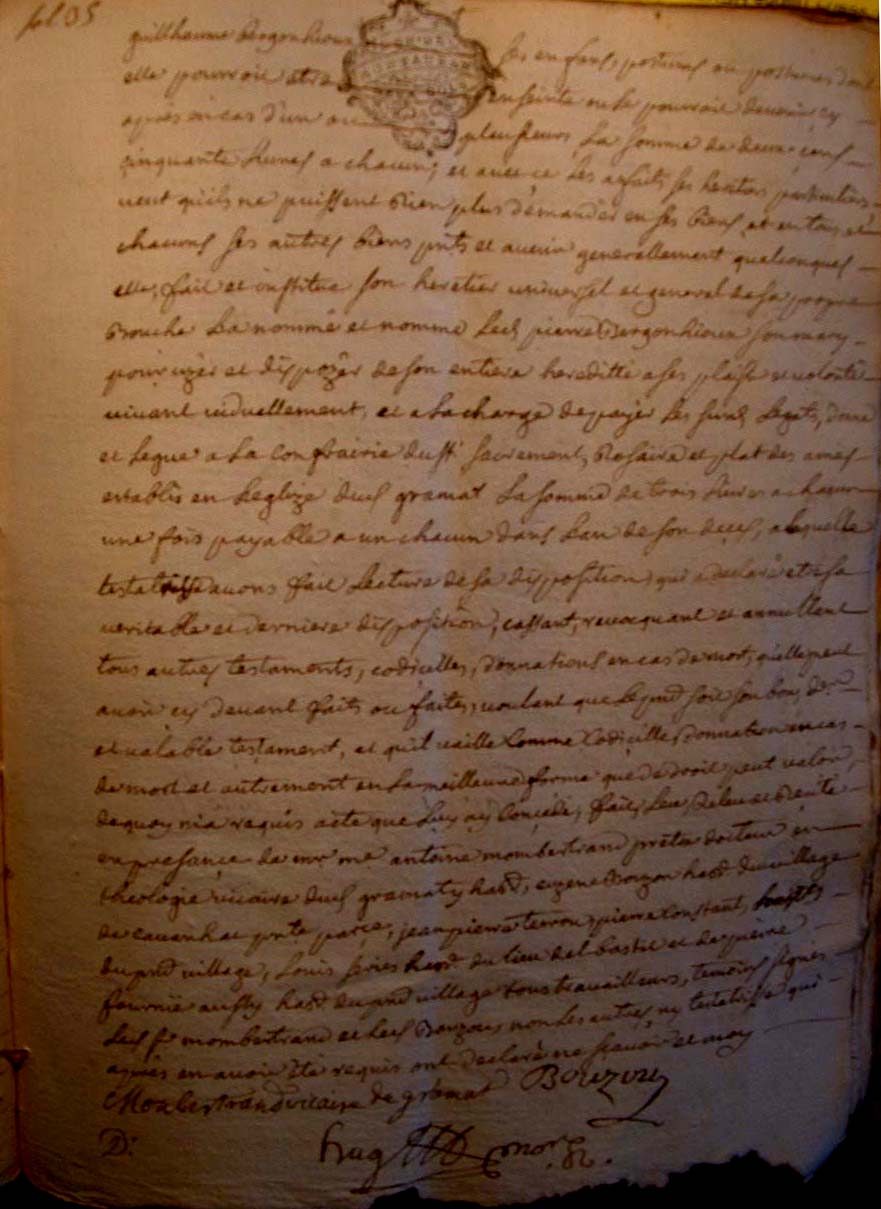 fol 35
guilhaume bergonhioux ses enfans postumes ou postumes dont
elle pourroit etre enseinte ou se pourroit devenir cy
apres en cas d'un ou plusieurs la somme de deux cens
cinquante livres a chacun, et avec ce les a faits ses heretiers particuliers
veut qu'ils ne puissent Rien plus demander en ses biens et en tous et
chacuns ses autres biens pnts et avenir generallement quelconques
elle, fait et institue son heretier universel et general de sa propre
Bouche La nommé et nomme led. pierre Bergonhioux son mary
pour uzer et dispozer de son entiere hereditté a ses plaisr et volonté
vivant viduellement, et a la charge de payer les susd. Legats, donne
et legue a La Confrairie du st. sacrement, Rosaire et plat des ames
establis en Leglize dud. gramat La somme de trois livres a chacun
une fois payable a un chacun dans Lan de son deces, a laquelle
testatrisse avons fait Lecture de sa disposition, qui a declaré etre sa
veritable et derniere disposition, cassant, revocquant et annullant
tous autres testaments, codicilles, donnations en cas de mort, qu'elle peut
avoir cy devant faits ou faites, voulant que le pnt soit son bon, der
et valable testament, et qu'il vaille Comme Codicille, donnation en cas
de mort et autrement en La meilleure forme que de droit peut valoir,
de quoy m'a requis acte que Luy ay Concédé, fait, Leu, Releu et Récité
en presance de mr me antoine mombertrand pretre docteur en
theologie vicaire dud. gramat y habt, Bouzon habt du village
de cavanhac pnte parce, jean pierre terrou, pierre Constant, habts
du pnt village, Louis series habt du lieu del bastit et de pierre
fournié aussy habt du pnt village tous travailleurs, temoins signes
Led. sr mombertrand et led. Bouzou, non Les autres, ny testatrisse qui
apres en avoir été requis ont declaré ne scavoir et moy
Monbertrand vicaire de gramat Bouzou
D.
hug nore